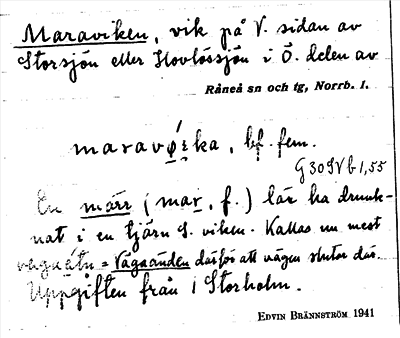 Maraviken, vik på V. sidan av
Storsjön eller Hovlössjön i Ö. delen av
Råneå sn och tg, Norrb. l.
maravǿɪ̯ka, bf. fem.
G30SVb1,55
En märr (mar, f.) lär ha drunk-
nat i en tjärn S. viken. Kallas nu mest
= Vägaänden därför att vägen slutar där.
Uppgiften från 1 Storholm.
EDVIN BRÄNNSTRÖM 1941